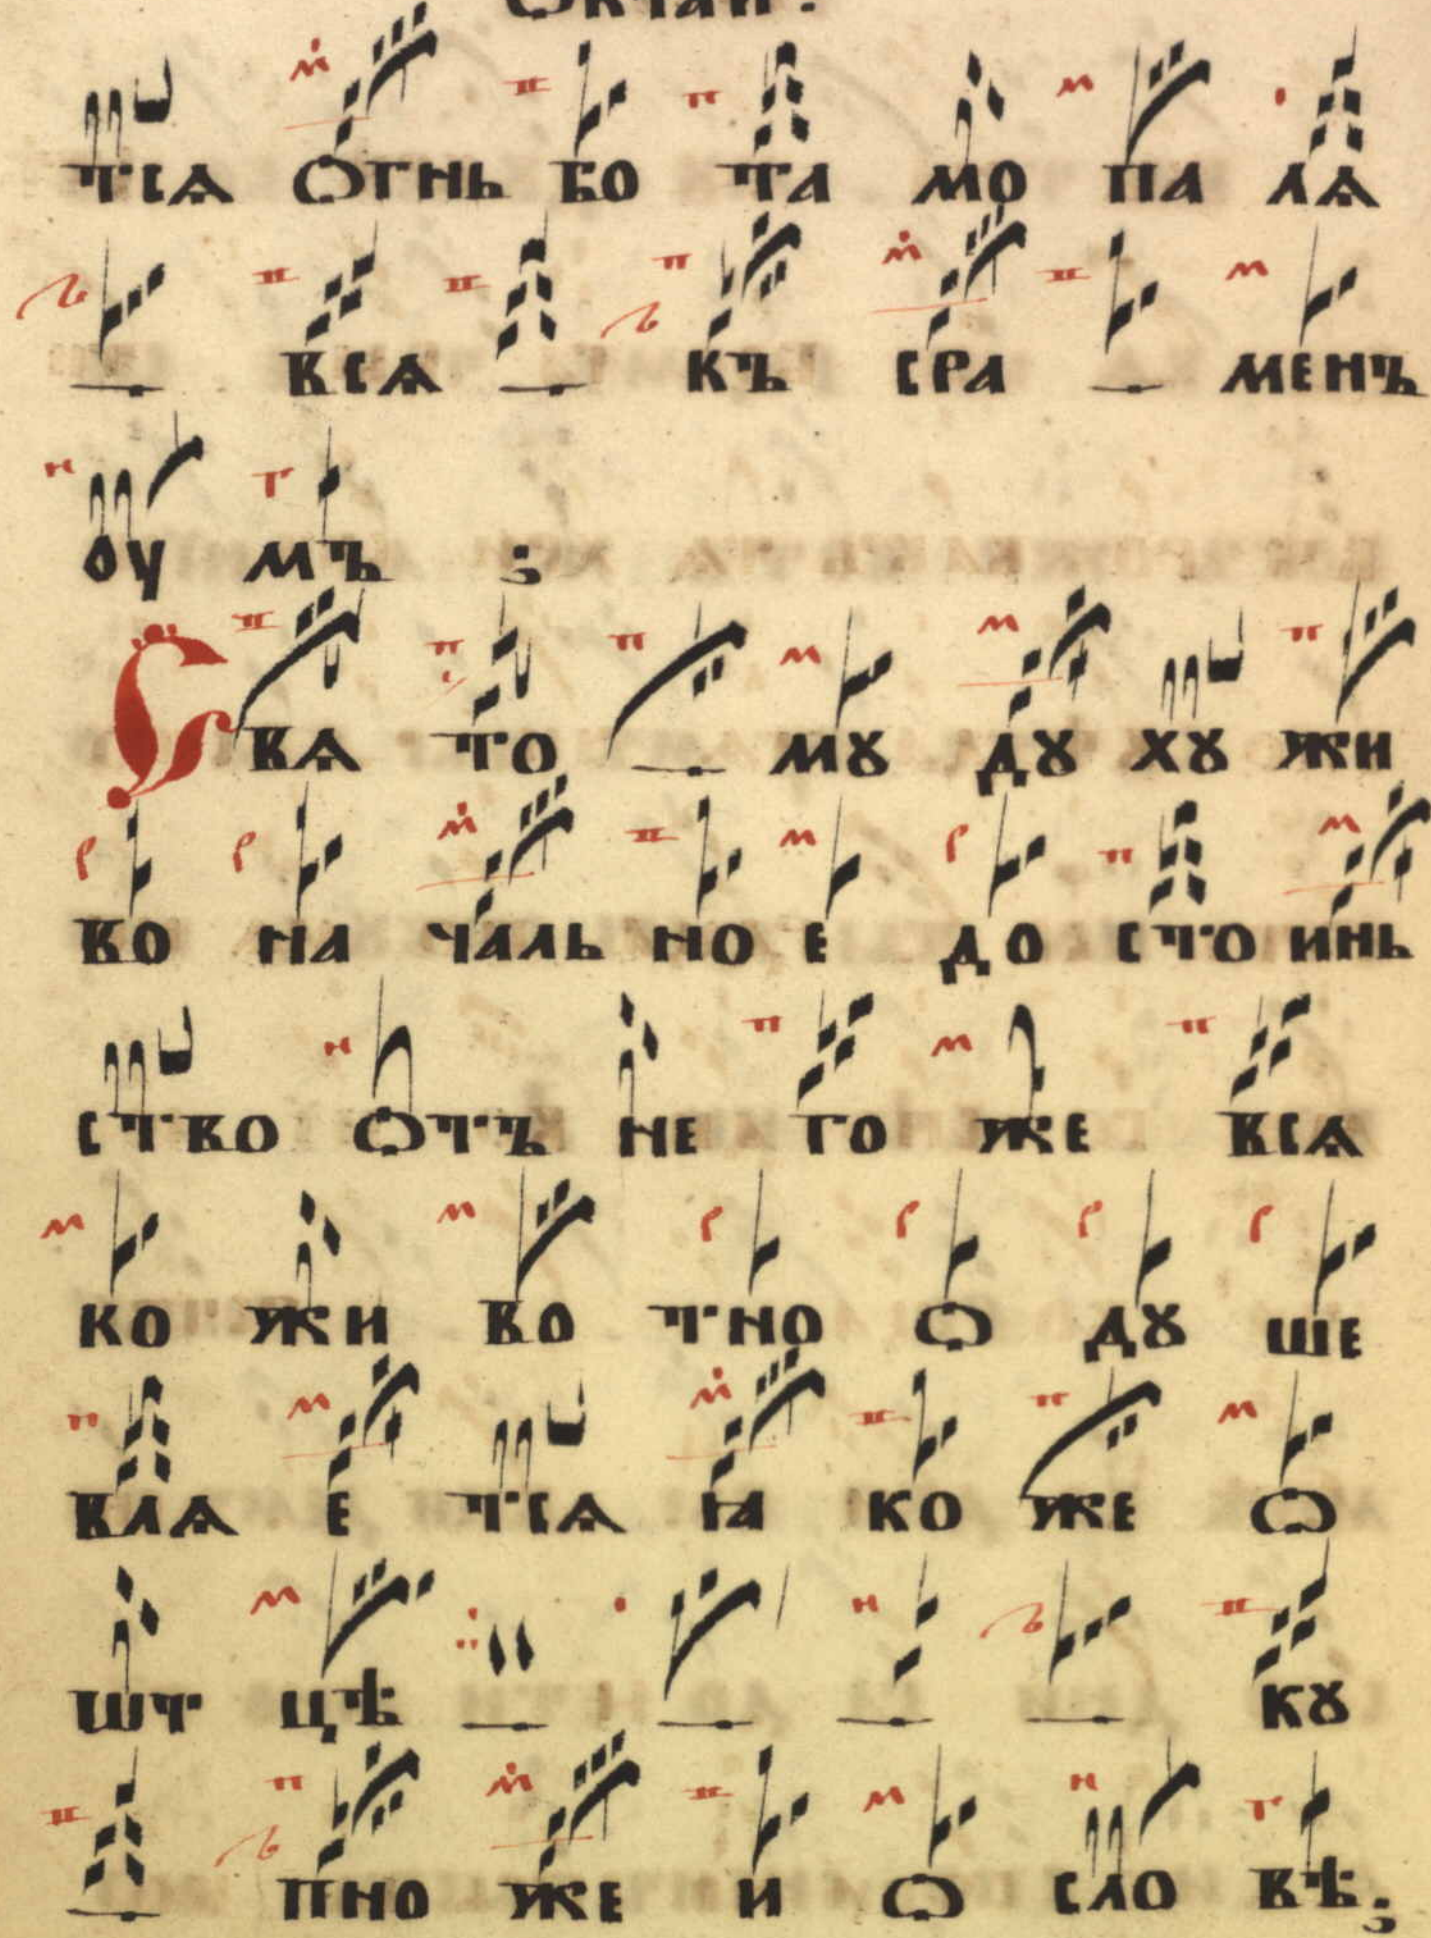 тсѧ ѻгнь бо та мо па лѧ
всѧ къ сра менъ
оу мъ
Свѧ то мꙋ дꙋ хꙋ жи
во на чаль но е до сто инь
ство ѻтъ не го же всѧ
ко жи во тно ѻ дꙋ ше
влѧ е тсѧ ꙗ ко же ѻ
шт цѣ кꙋ
пно же и ѻ сло вѣ;